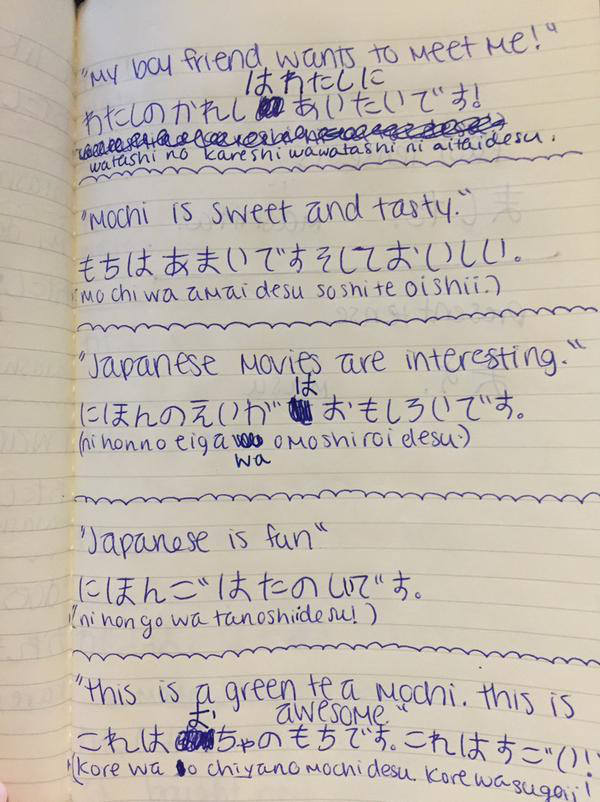 "My boy friend wants to meet me!"
はわたしに
わたしのかれし あいたいです!
watashi no kareshi wawatashi ni aitaidesu.
"Mochi is sweet and tasty."
もちは あまいですそしておいしい。
(mo chi wa amai desu soshite oishii.)
"Japanese movies are interesting."
は
にほんのえいが おもしろいです。
(ni honno eiga omoshiroi desu.)
wa
"Japanese is fun"
にほんごはたのしいです。
(ni hon go wa tanoshiidesu!)
"this is a green tea mochi. this is
お awesome"
これは ちゃのもちです。これはすごい!
(kore wa o chiyano mochi desu. Korewasugoii!